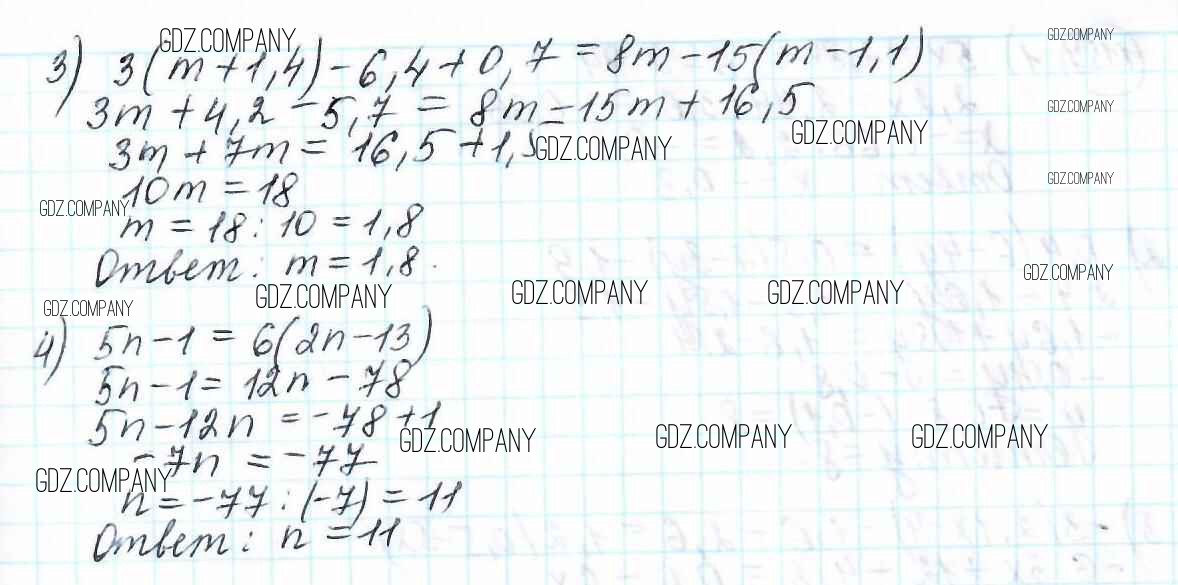 GDZ.COMPANY
GDZ.COMPANY
3) 3(m+1,4)-6,4+0,7=8m-15(m-1,1)
3m+4,2-5,7=8m-15m+16,5
GDZ.COMPANY
GDZ.COMPANY
3m+7m=16,5+1,5
GDZ.COMPANY
10m=18
GDZ.COMPANY
GDZ.COMPANY
m=18:10=1,8
Ответ: m=1,8.
GDZ.COMPANY
GDZ.COMPANY
GDZ.COMPANY
GDZ.COMPANY
GDZ.COMPANY
4) 5n-1=6(2n-13)
5n-1=12n-78
5n-12n=-78+1
GDZ.COMPANY
GDZ.COMPANY
GDZ.COMPANY
-7n=-77
GDZ.COMPANY
n=-77:(-7)=11
Ответ: n=11